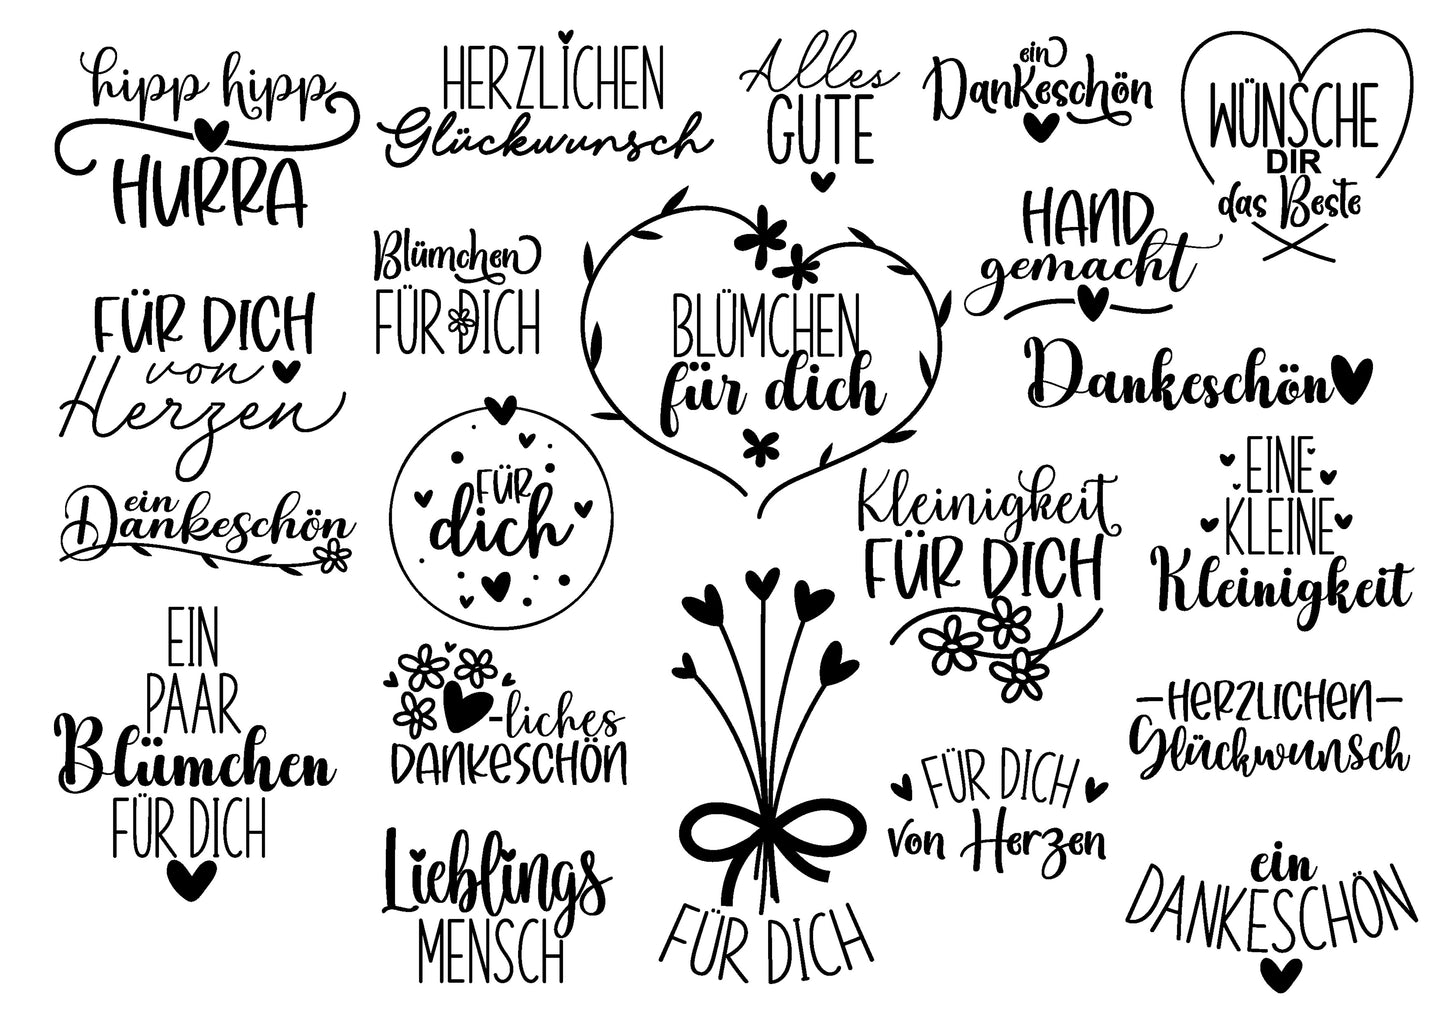 hipp hipp
HURRA
HERZLICHEN
Glückwunsch
Alles
GUTE
ein
Dankeschön
WÜNSCHE
DIR
das Beste
HAND
gemacht
Blümchen
FÜR DICH
BLÜMCHEN
für dich
FÜR DICH
von
Herzen
Dankeschön
FÜR
dich
ein
Dankeschön
Kleinigkeit
FÜR DICH
EINE
KLEINE
Kleinigkeit
EIN
PAAR
Blümchen
FÜR DICH
-liches
DANKESCHÖN
FÜR DICH
HERZLICHEN
Glückwunsch
FÜR DICH
von Herzen
Lieblings
MENSCH
ein
DANKESCHÖN